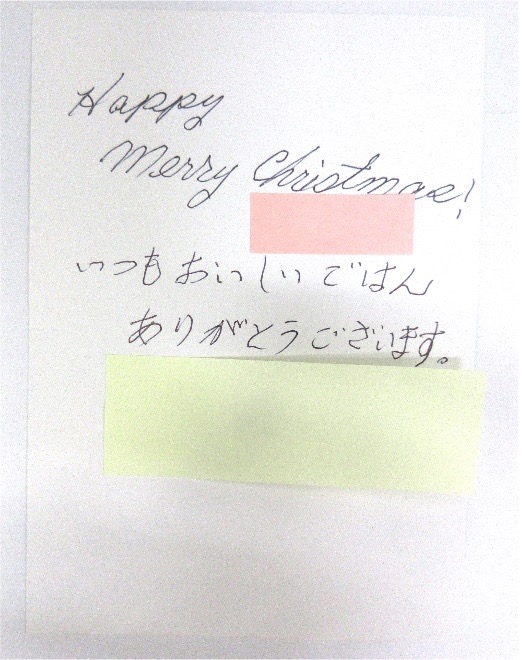 Happy
Merry Christmas!
いつもおいしいごはん
ありがとうございます。